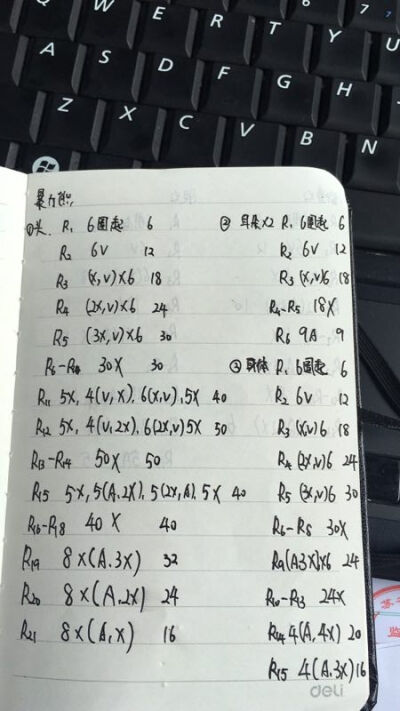 Q W E R T Y U
7 7
A S D F G H
Z X C V B N
暴力熊
①头. R1 6圈起 6
R2 6V 12
R3 (X,V)×6 18
R4 (2X,V)×6 24
R5 (3X,V)×6 30
30X 30
R11 5X, 4(V,X), 6(X,V), 5X 40
R12 5X, 4(V,2X), 6(2X,V) 5X 50
R13-R14 50X 50
R15 5X, 5(A,2X), 5(2X,A), 5X 40
R16-R18 40X 40
R19 8X(A,3X) 32
R20 8X(A,2X) 24
R21 8X(A,X) 16
② 耳朵×2 R1 6圈起 6
R2 6V 12
R3 (X,V)6 18
R4-R5 18X
R6 9A 9
③ 身体 R1 6圈起 6
R2 6V 12
R3 (X,V)6 18
R4 (2X,V)6 24
R5 (3X,V)6 30
R6-R8 30X
R9 (A3X)×6 24
R10-R13 24X
R14 4(A,4X) 20
R15 4(A,3X) 16
deli